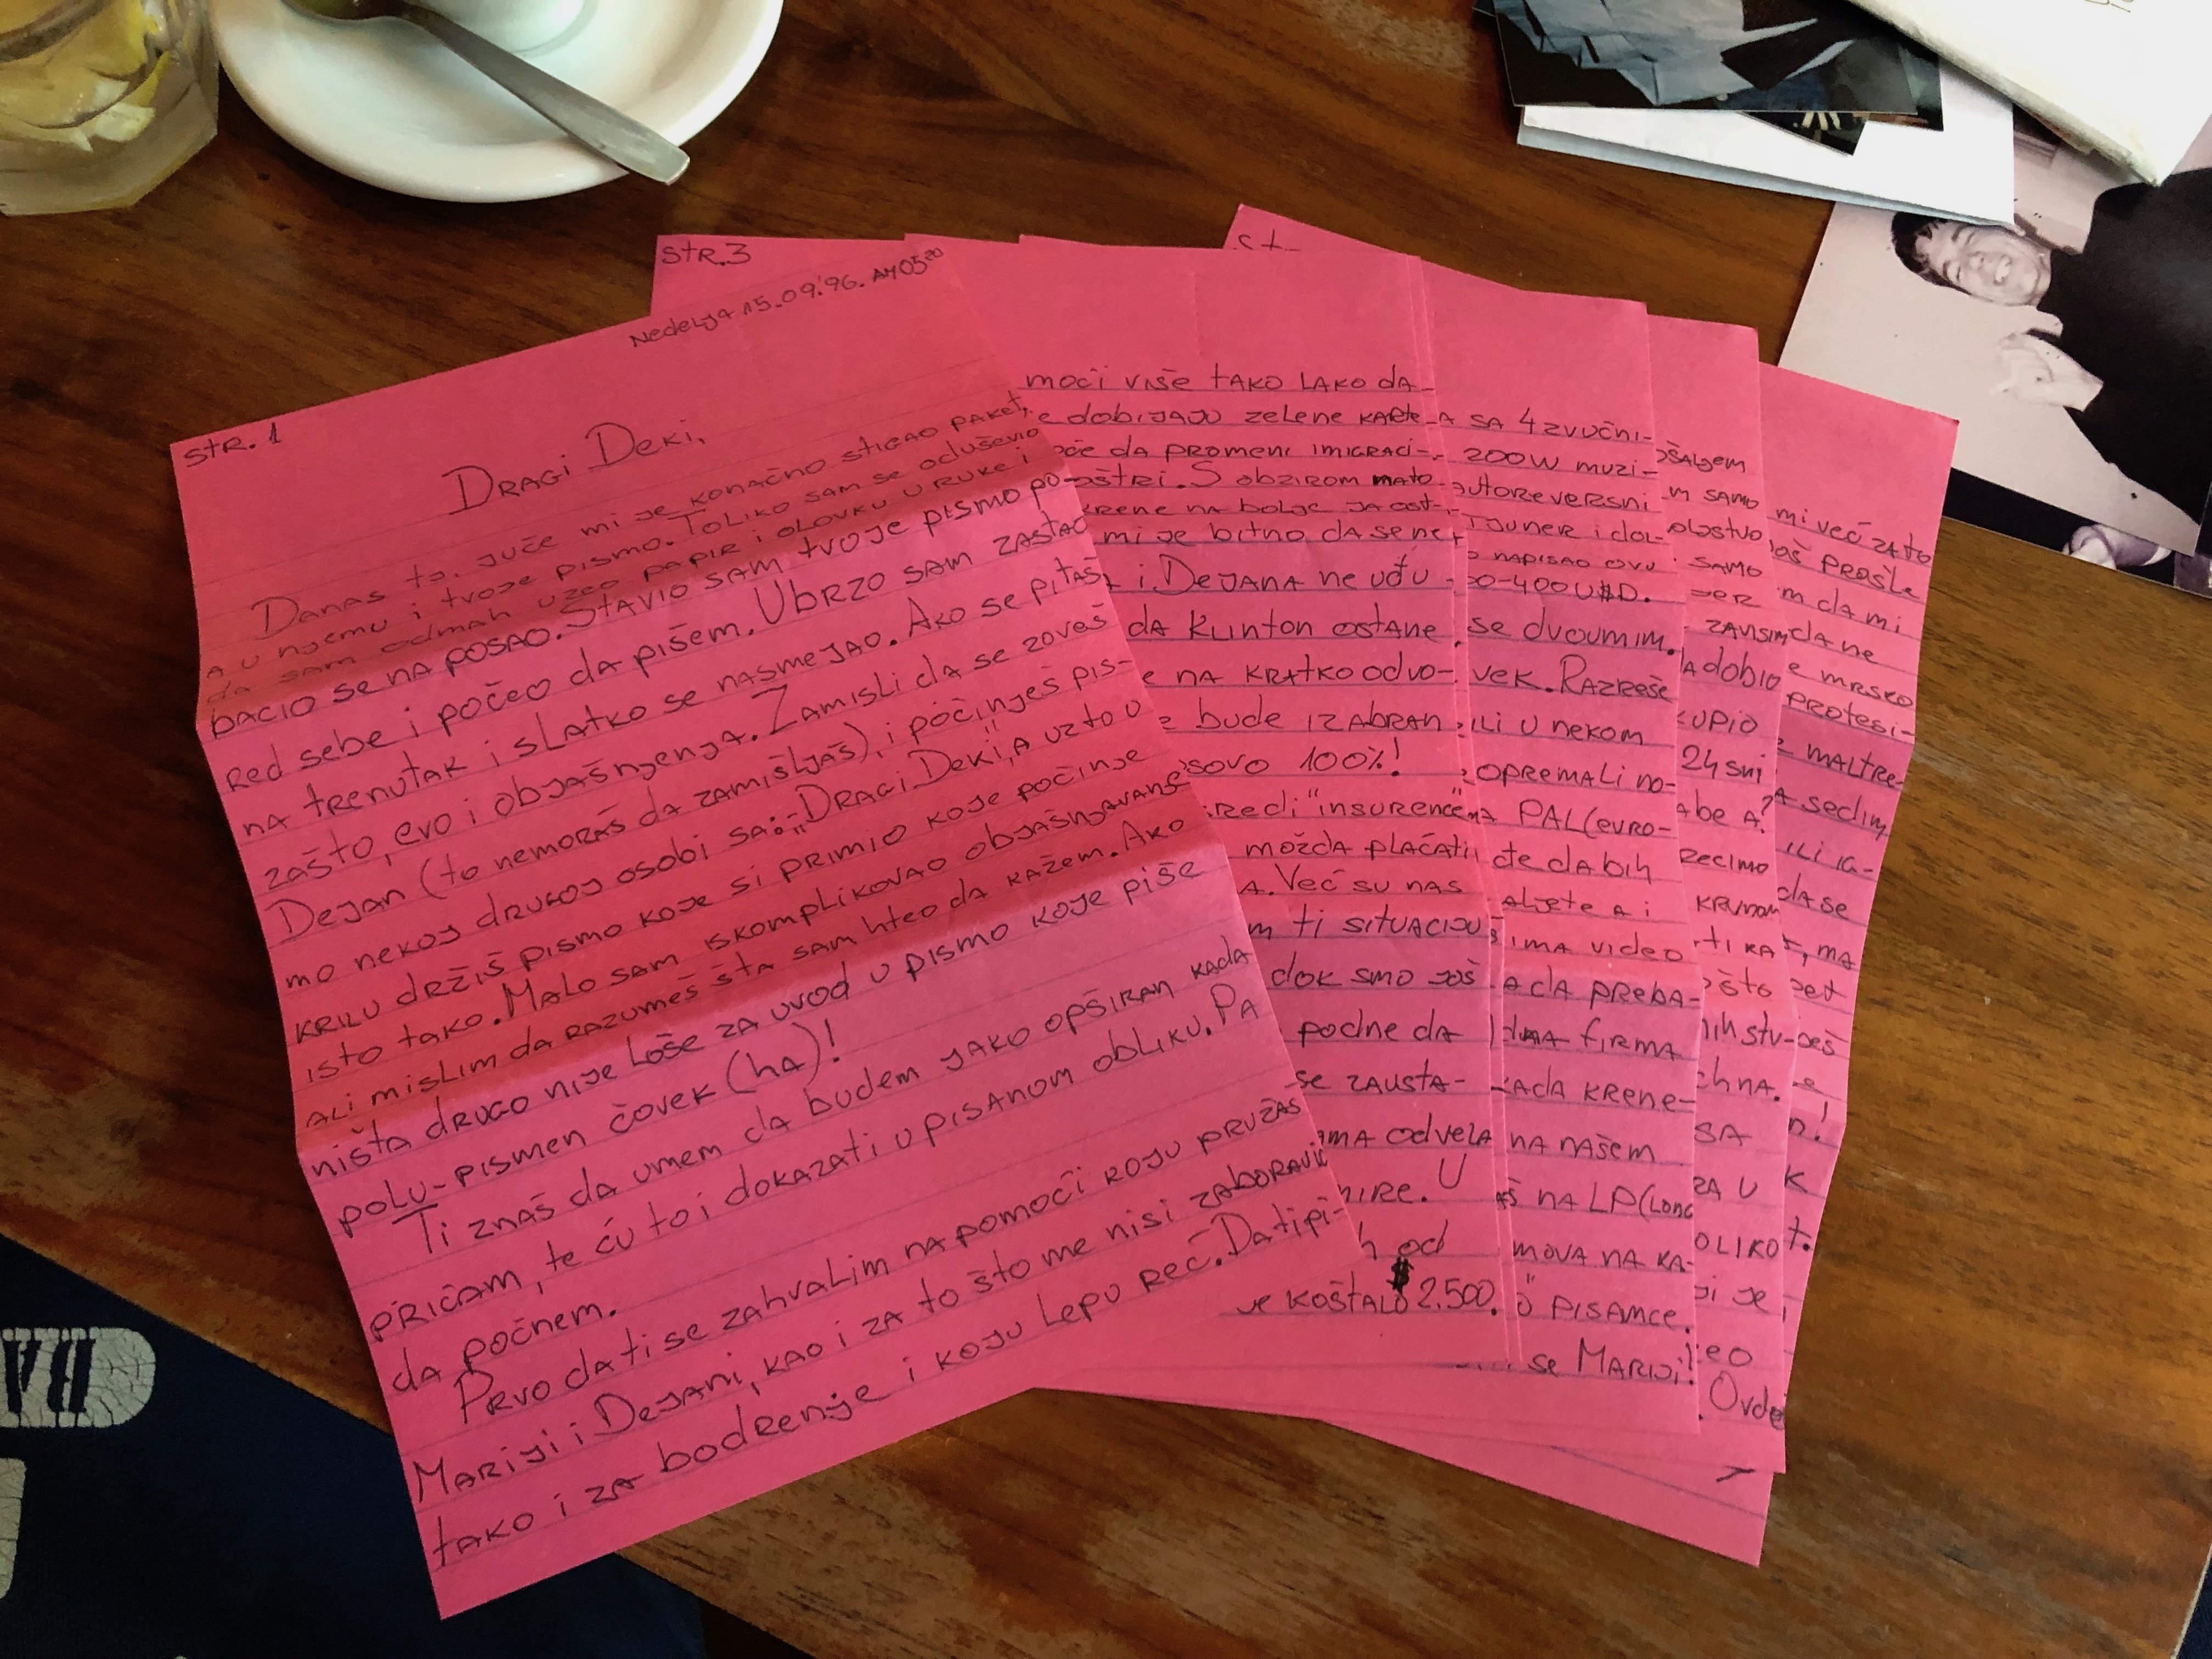 STR. 1
Nedelja 15.09.'96. AM 05²⁰
DRAGI DEKI,
DANAS tj. JUČE mi je KONAČNO STIGAO PAKET,
A U njemu i tvoje PISMO. TOLIKO SAM SE ODUŠEVIO
da SAM odmah uzeo PAPIR i OLOVKU U RUKE i
BACIO SE NA POSAO. STAVIO SAM tvoje PISMO po-
red sebe i počeo da pišem. Ubrzo SAM ZASTAO
na trenutak i SLATKO se NASMEJAO. Ako se pitaš
zašto, evo i objašnjenja. Zamisli da se zoveš
Dejan (to nemoraš da zamišljaš), i počinješ pis-
mo nekoj drugoj osobi sa: „Dragi Deki", a uz to u
krilu držiš pismo koje si primio koje počinje
isto tako. Malo sam iskomplikovao objašnjavanje
ali mislim da razumeš šta sam hteo da kažem. Ako
ništa drugo nije loše za uvod u pismo koje piše
polu-pismen čovek (ha)!
Ti znaš da umem da budem jako opširan kada
pričam, te ću to i dokazati u pisanom obliku. Pa
da počnem.
Prvo da ti se zahvalim na pomoći koju pružaš
Mariji i Dejani, kao i za to što me nisi zaboravio
tako i za bodrenje i koju lepu reč. Da ti pi-
STR.3
moći više tako lako da
e dobijaju zelene karte
oće da promeni imigraci-
oštri. S obzirom
krene na bolje ja ost-
mi je bitno da se ne
i Dejana ne uđu
da Klinton ostane
e na kratko odvo-
bude izabran
sovo 100%!
sredi "insurence"
možda plaćati
a. Već su nas
m ti situaciju
dok smo još
podne da
se zausta-
ama odvela
mire. U
h od
je koštalo $2.500.
A SA 4 zvučni-
200W muzi-
autoreversni
tjuner i dol-
napisao ovu
00-400 U$D.
se dvoumim.
vek. Razreše
ili u nekom
opremali no-
PAL (evro-
ćte da bih
aljete a i
ima video
a da preba-
firma
kada krene-
na našem
na LP (Long
mova na ka-
" pisamce.
se Mariji!
ošaljem
m samo
olstvo
samo
zavsim
a dobio
kupio
24 sni
abe a?
recimo
krunom
što
nih stu-
chna.
SA
ZA U
oliko
ji je
eo
Ovde
mi već za to
oš prošle
m da mi
da ne
e mrsko
protesi-
maltre-
a sedim
ili ig-
da se
, ma
pet
eš
n!
K
t.